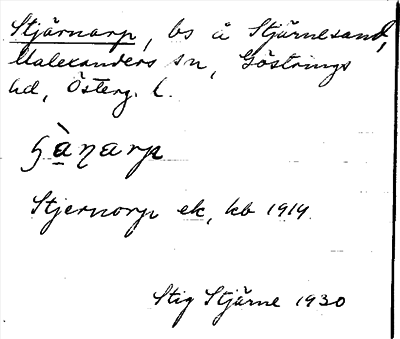 Stjärnarp, bs å Stjärnesand,
Malexanders sn, Göstrings
hd, Österg. l.
ɧànarp
Stjernorp ek, kb 1919.
Stig Stjärne 1930